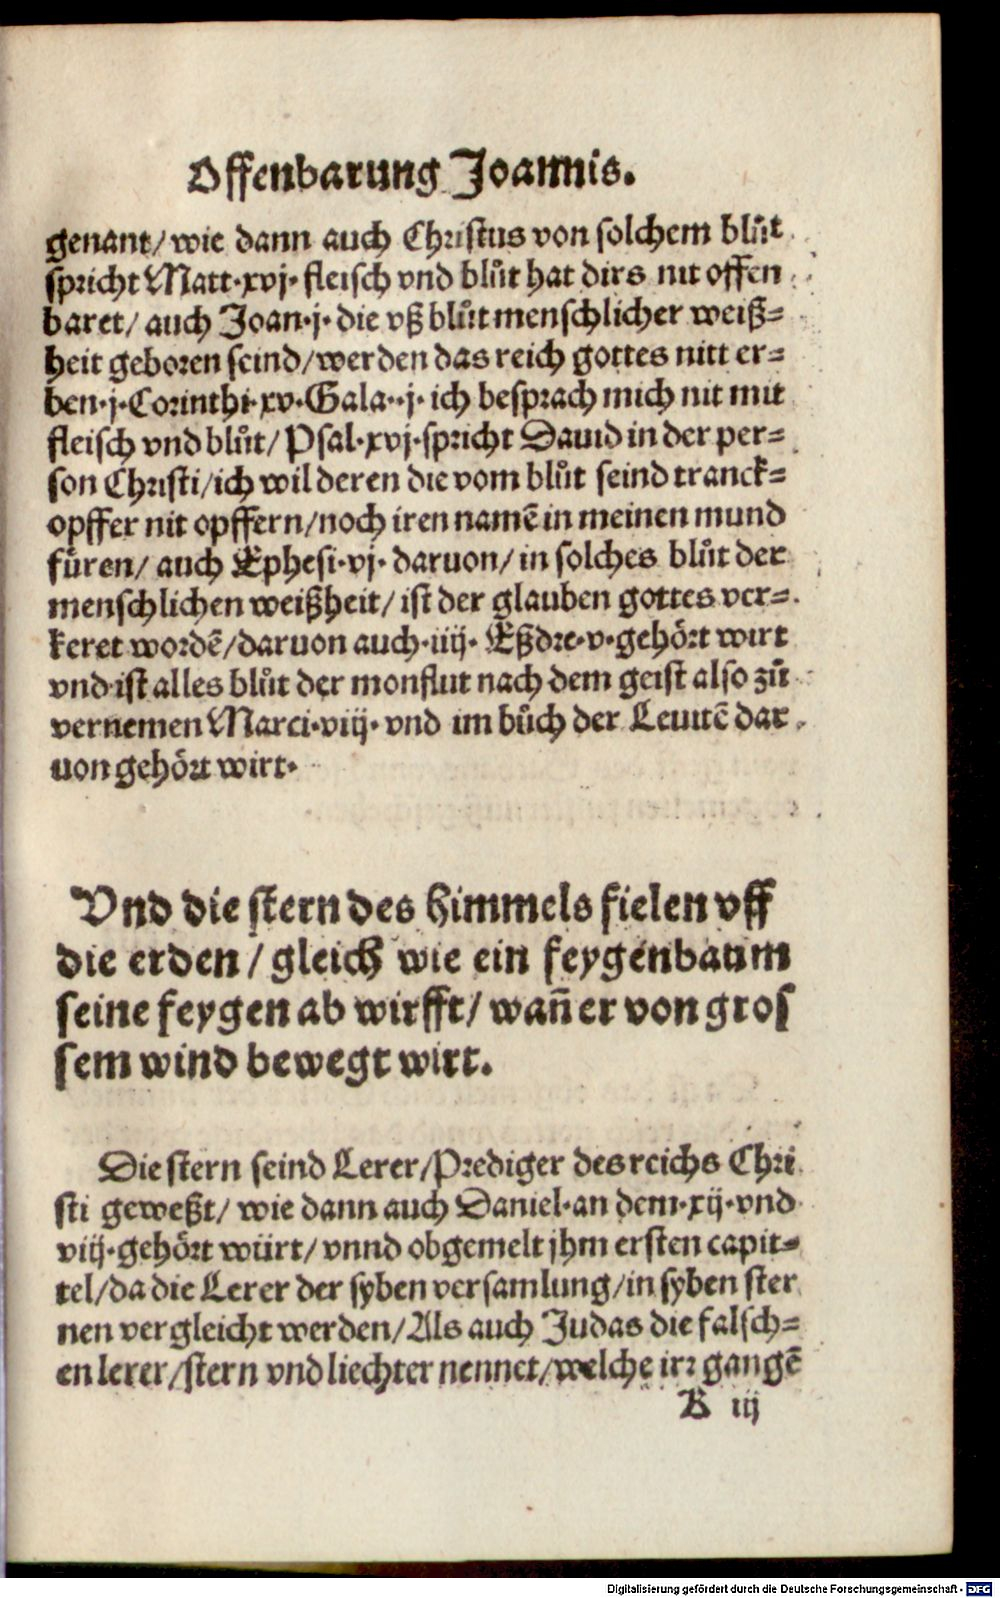 Offenbarung Joannis.
genant/ wie dann auch Christus von solchem blůt
spricht Matt·xvj· fleisch vnd blůt hat dirs nit offen
baret/ auch Joan·j· die vß blůt menschlicher weiß⸗
heit geboren seind/werden das reich gottes nitt er⸗
ben·j·Corinthi·xv·Gala··j· ich besprach mich nit mit
fleisch vnd blůt/ Psal·xvj·spricht Dauid in der per⸗
son Christi/ich wil deren die vom blůt seind tranck⸗
opffer nit opffern/noch iren namē in meinen mund
fůren/ auch Ephesi·vj· daruon/ in solches blůt der
menschlichen weißheit/ ist der glauben gottes ver⸗
keret wordē/daruon auch·iiij· Eßdre·v·gehört wirt
vnd ist alles blůt der monflut nach dem geist also zů
vernemen Marci·viij· vnd im bůch der Leuitē dar
uon gehört wirt·
Vnd die stern des himmels fielen vff
die erden/ gleich wie ein feygenbaum
seine feygen ab wirfft/ wañ er von gros
sem wind bewegt wirt.
Die stern seind Lerer/Prediger des reichs Chri
sti geweßt/ wie dann auch Daniel·an dem·xij·vnd
viij·gehört würt/ vnnd obgemelt jhm ersten capit⸗
tel/da die Lerer der syben versamlung/in syben ster
nen vergleicht werden/Als auch Judas die falsch⸗
en lerer/stern vnd liechter nennet/welche irr gangē
K iij
Digitalisierung gefördert durch die Deutsche Forschungsgemeinschaft - DFG